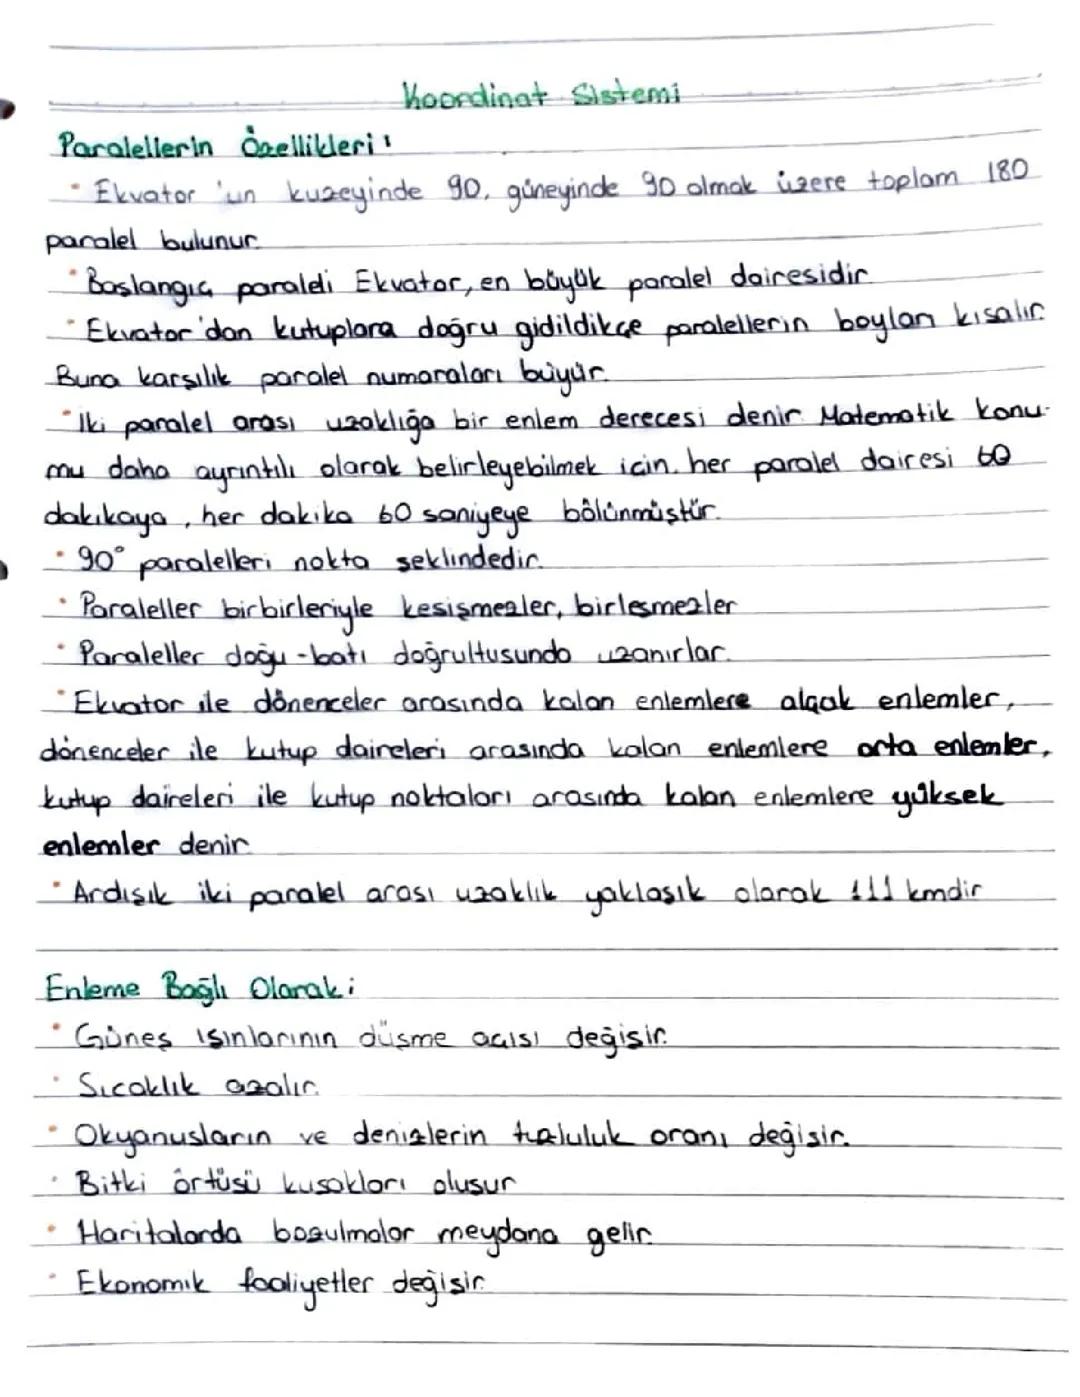 Koordinat Sistemi
Paralellerin Özellikleri:
• Ekvator'un kuzeyinde 90, güneyinde 90 olmak üzere toplam 180
paralel bulunur.
• Başlangıç paraleli Ekvator, en büyük paralel dairesidir.
• Ekvator'dan kutuplara doğru gidildikçe paralellerin boyları kısalır.
Buna karşılık paralel numaraları büyür.
• İki paralel arası uzaklığa bir enlem derecesi denir. Matematik konu-
mu daha ayrıntılı olarak belirleyebilmek için, her paralel dairesi 60
dakikaya, her dakika 60 saniyeye bölünmüştür.
• 90° paralelleri nokta şeklindedir.
• Paraleller birbirleriyle kesişmezler, birleşmezler
• Paraleller doğu-batı doğrultusunda uzanırlar.
• Ekvator ile dönenceler arasında kalan enlemlere alçak enlemler,
dönenceler ile kutup daireleri arasında kalan enlemlere orta enlemler,
kutup daireleri ile kutup noktaları arasında kalan enlemlere yüksek
enlemler denir.
• Ardışık iki paralel arası uzaklık yaklaşık olarak 111 kmdir
Enleme Bağlı Olarak;
• Güneş ışınlarının düşme açısı değişir.
• Sıcaklık azalır.
• Okyanusların ve denizlerin tuzluluk oranı değişir.
• Bitki örtüsü kuşakları oluşur
• Haritalarda bozulmalar meydana gelir.
• Ekonomik faaliyetler değişir.